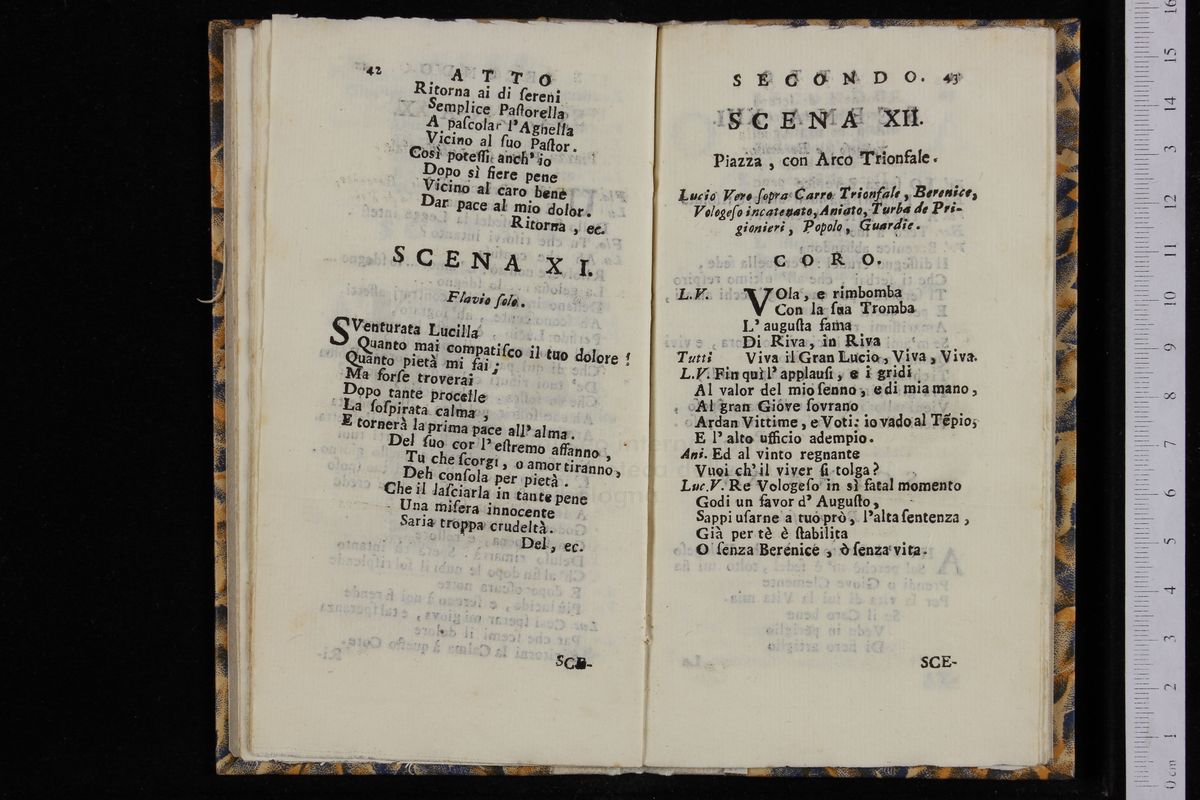 42 ATTO
Ritorna ai di ſereni
Semplice Paſtorella
A paſcolar l'Agnella
Vicino al ſuo Paſtor.
Così poteſſi anch' io
Dopo sì fiere pene
Vicino al caro bene
Dar pace al mio dolor.
Ritorna, ec.
SCENA XI.
Flavio ſolo.
SVenturata Lucilla
Quanto mai compatiſco il tuo dolore!
Quanto pietà mi fai;
Ma forſe troverai
Dopo tante procelle
La ſoſpirata calma,
E tornerà la prima pace all' alma.
Del ſuo cor l' eſtremo affanno,
Tu che ſcorgi, o amor tiranno,
Deh conſola per pietà.
Che il laſciarla in tante pene
Una miſera innocente
Saria troppa crudeltà.
Del, ec.
SCE-
SECONDO. 43
SCENA XII.
Piazza, con Arco Trionfale.
Lucio Vero ſopra Carro Trionfale, Berenice,
Vologeſo incatenato, Aniato, Turba de Pri-
gionieri, Popolo, Guardie.
CORO.
L.V. VOla, e rimbomba
Con la ſua Tromba
L' auguſta fama
Di Riva, in Riva
Tutti Viva il Gran Lucio, Viva, Viva.
L.V. Fin quì l' applauſi, e i gridi
Al valor del mio ſenno, e di mia mano,
Al gran Giove ſovrano
Ardan Vittime, e Voti: io vado al Tẽpio,
E l' alto ufficio adempio.
Ani. Ed al vinto regnante
Vuoi ch' il viver ſi tolga?
Luc.V. Re Vologeſo in sì fatal momento
Godi un favor d' Auguſto,
Sappi uſarne a tuo prò, l'alta ſentenza,
Già per tè è ſtabilita
O ſenza Berenice, ò ſenza vita.
SCE-